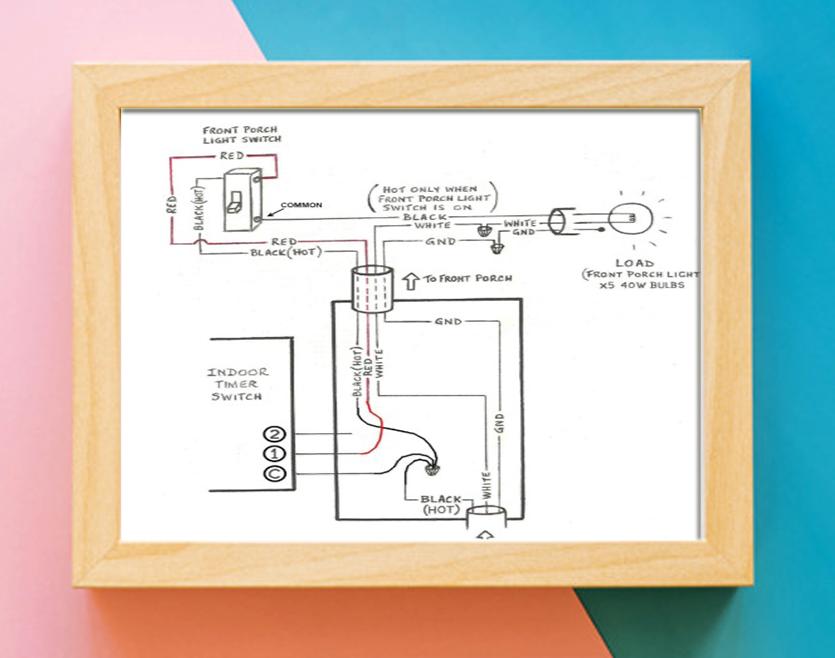 FRONT PORCH
LIGHT SWITCH
RED
RED
BLACK(HOT)
COMMON
(HOT ONLY WHEN
FRONT PORCH LIGHT
SWITCH IS ON)
BLACK
WHITE
WHITE
GND
GND
RED
BLACK(HOT)
LOAD
(FRONT PORCH LIGHT
X5 40W BULBS
TO FRONT PORCH
GND
BLACK(HOT)
RED
WHITE
INDOOR
TIMER
SWITCH
2
1
C
GND
WHITE
BLACK
(HOT)